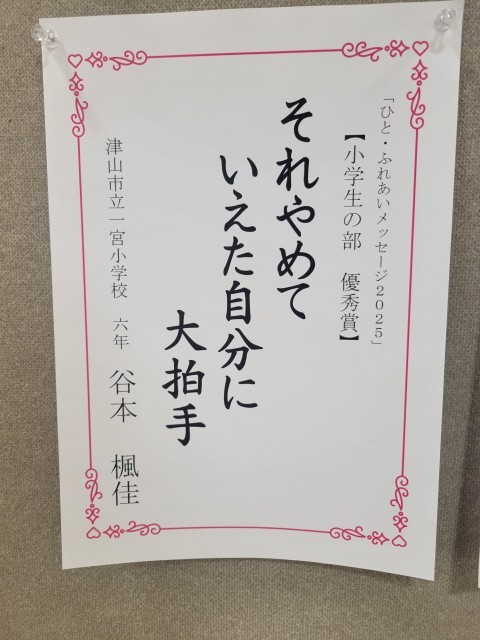 「ひと・ふれあいメッセージ2025」
【小学生の部　優秀賞】
それやめて
いえた自分に
大拍手
津山市立一宮小学校　六年　谷本　楓佳